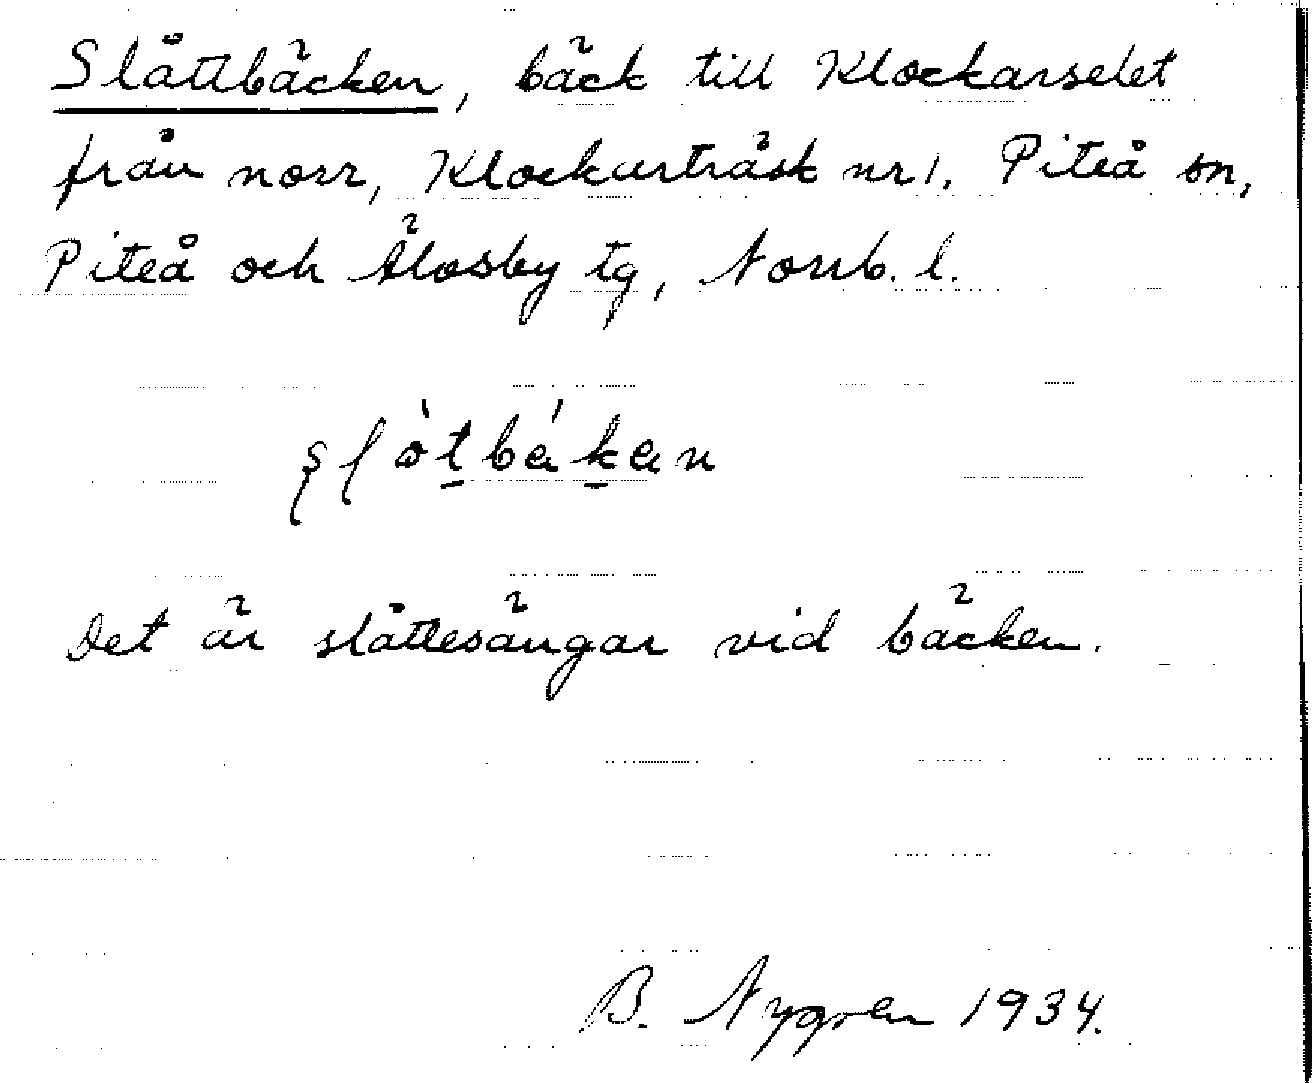 Slåttbäcken, bäck till Klockarselet
från norr, Klockarträsk nr 1, Piteå sn,
Piteå och Älvsby tg, Norrb. l.
Det är slåttesängar vid bäcken.
B. Nygren 1934.